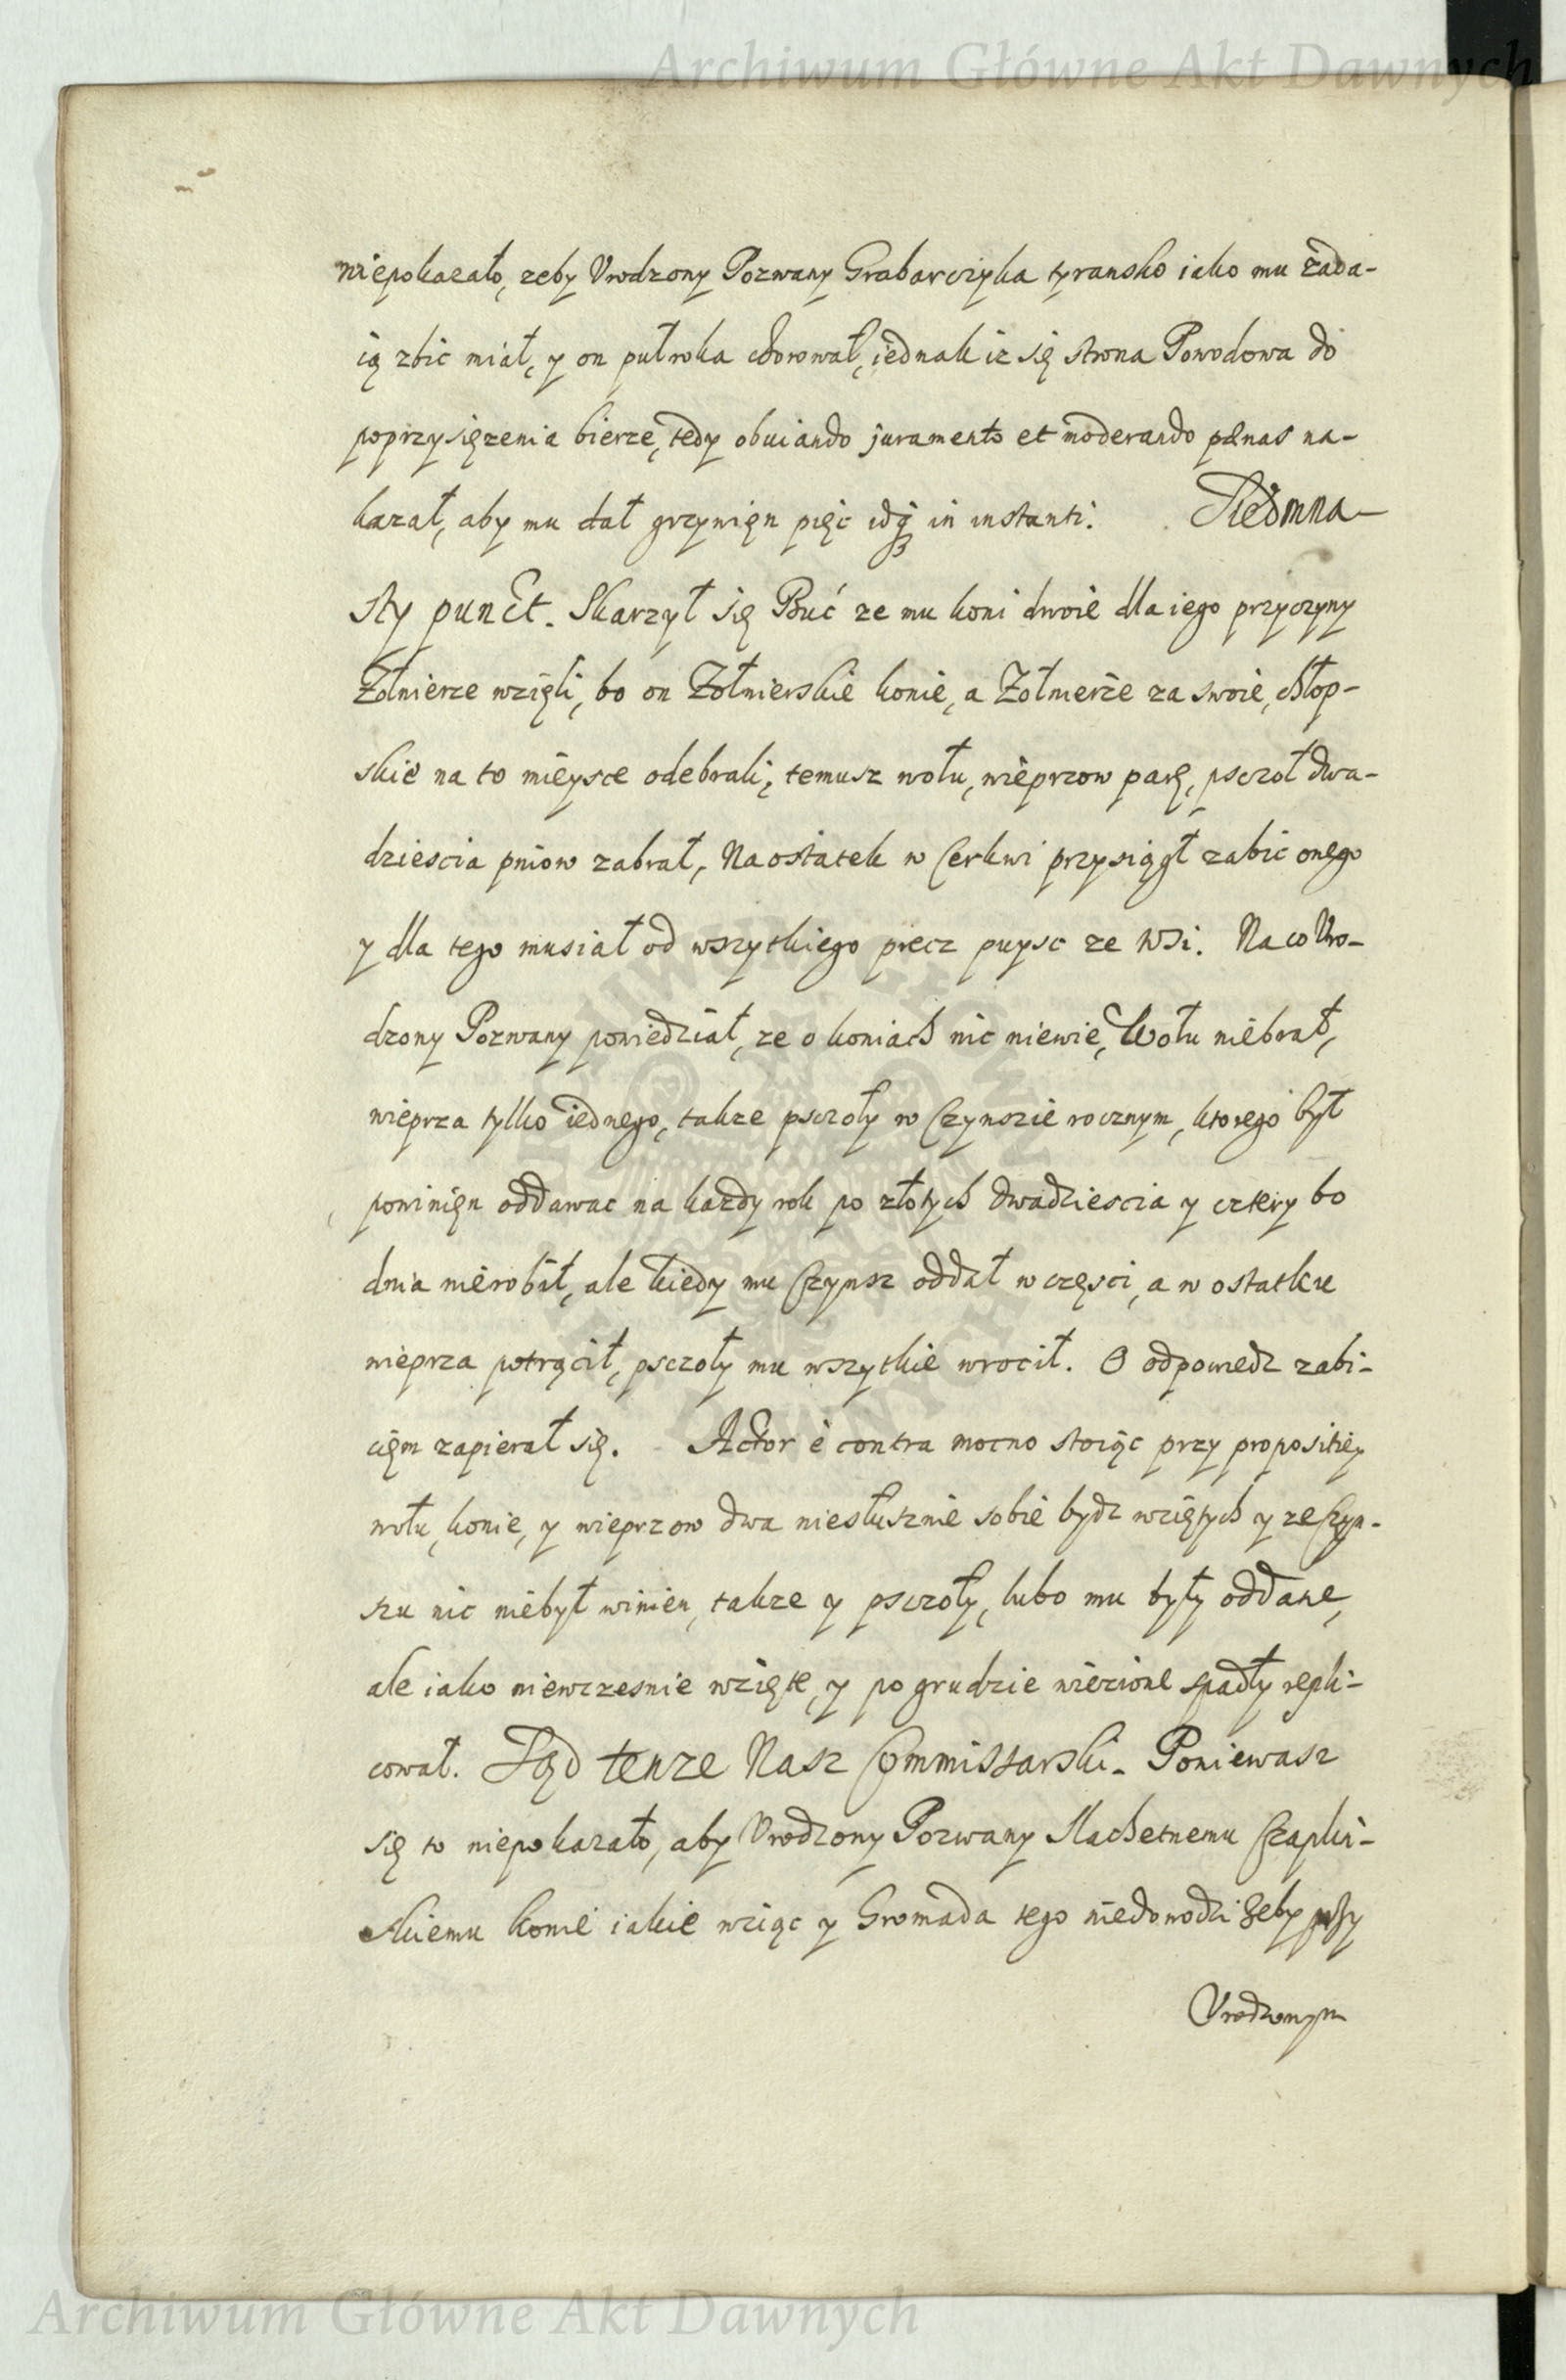 Archiwum Główne Akt Dawnych
niepokazało, zeby Urodzony Pozwany Grabarczyka tyransko iako mu zada-
ią zbic miał, y on puł roka chorował, iednak iz się strona Powodowa do
poprzysięzenia bierze, tedy obuiando juramento et moderando pænas na-
kazał, aby mu dał grzywięn pięc idq3 in instanti. Siedmna-
sty punct. Skarzył się Buć ze mu koni dwoie dla iego przyczyny
Zołnierze wzięli, bo on Zołnierskie konie, a Zołnierze za swoie, chłop-
skie na to mieysce odebrali, temusz wołu, wieprzow parę, psczoł dwa-
dziescia pniow zabrał, Na ostatek w Cerkwi przysiągł zabic onego
y dla tego musiał od wszytkiego precz puysc ze Wsi. Na co Uro-
dzony Pozwany powiedział, ze o koniach nic niewie, Wołu niebrał,
wieprza tylko iednego, takze psczoły w Czynszie rocznym, ktorego był
powinięn oddawac na kazdy rok po złotych dwadziescia y cztery bo
dnia nierobił, ale kiedy mu Czynsz oddał w częsci, a w ostatku
wieprza potrącił, psczoły mu wszytkie wrocił. O odpowiedz zabi-
cięm zapierał się. Actor è contra mocno stoiąc przy propositiey
wołu, konie, y wieprzow dwa niesłusznie sobie bydz wziętych y ze Czyn-
szu nic niebył winien, takze y psczoły, lubo mu były oddane,
ale iako niewczesnie wzięte, y po grudzie wiezione spadły repli-
cował. Sąd tenze Nasz Commissarski. Poniewasz
się to niepokazało, aby Urodzony Pozwany Slachetnemu Czapliń-
skiemu konie iakie wziąc y Gromada tego niedowodzi zeby przy
Urodzonym
Archiwum Główne Akt Dawnych